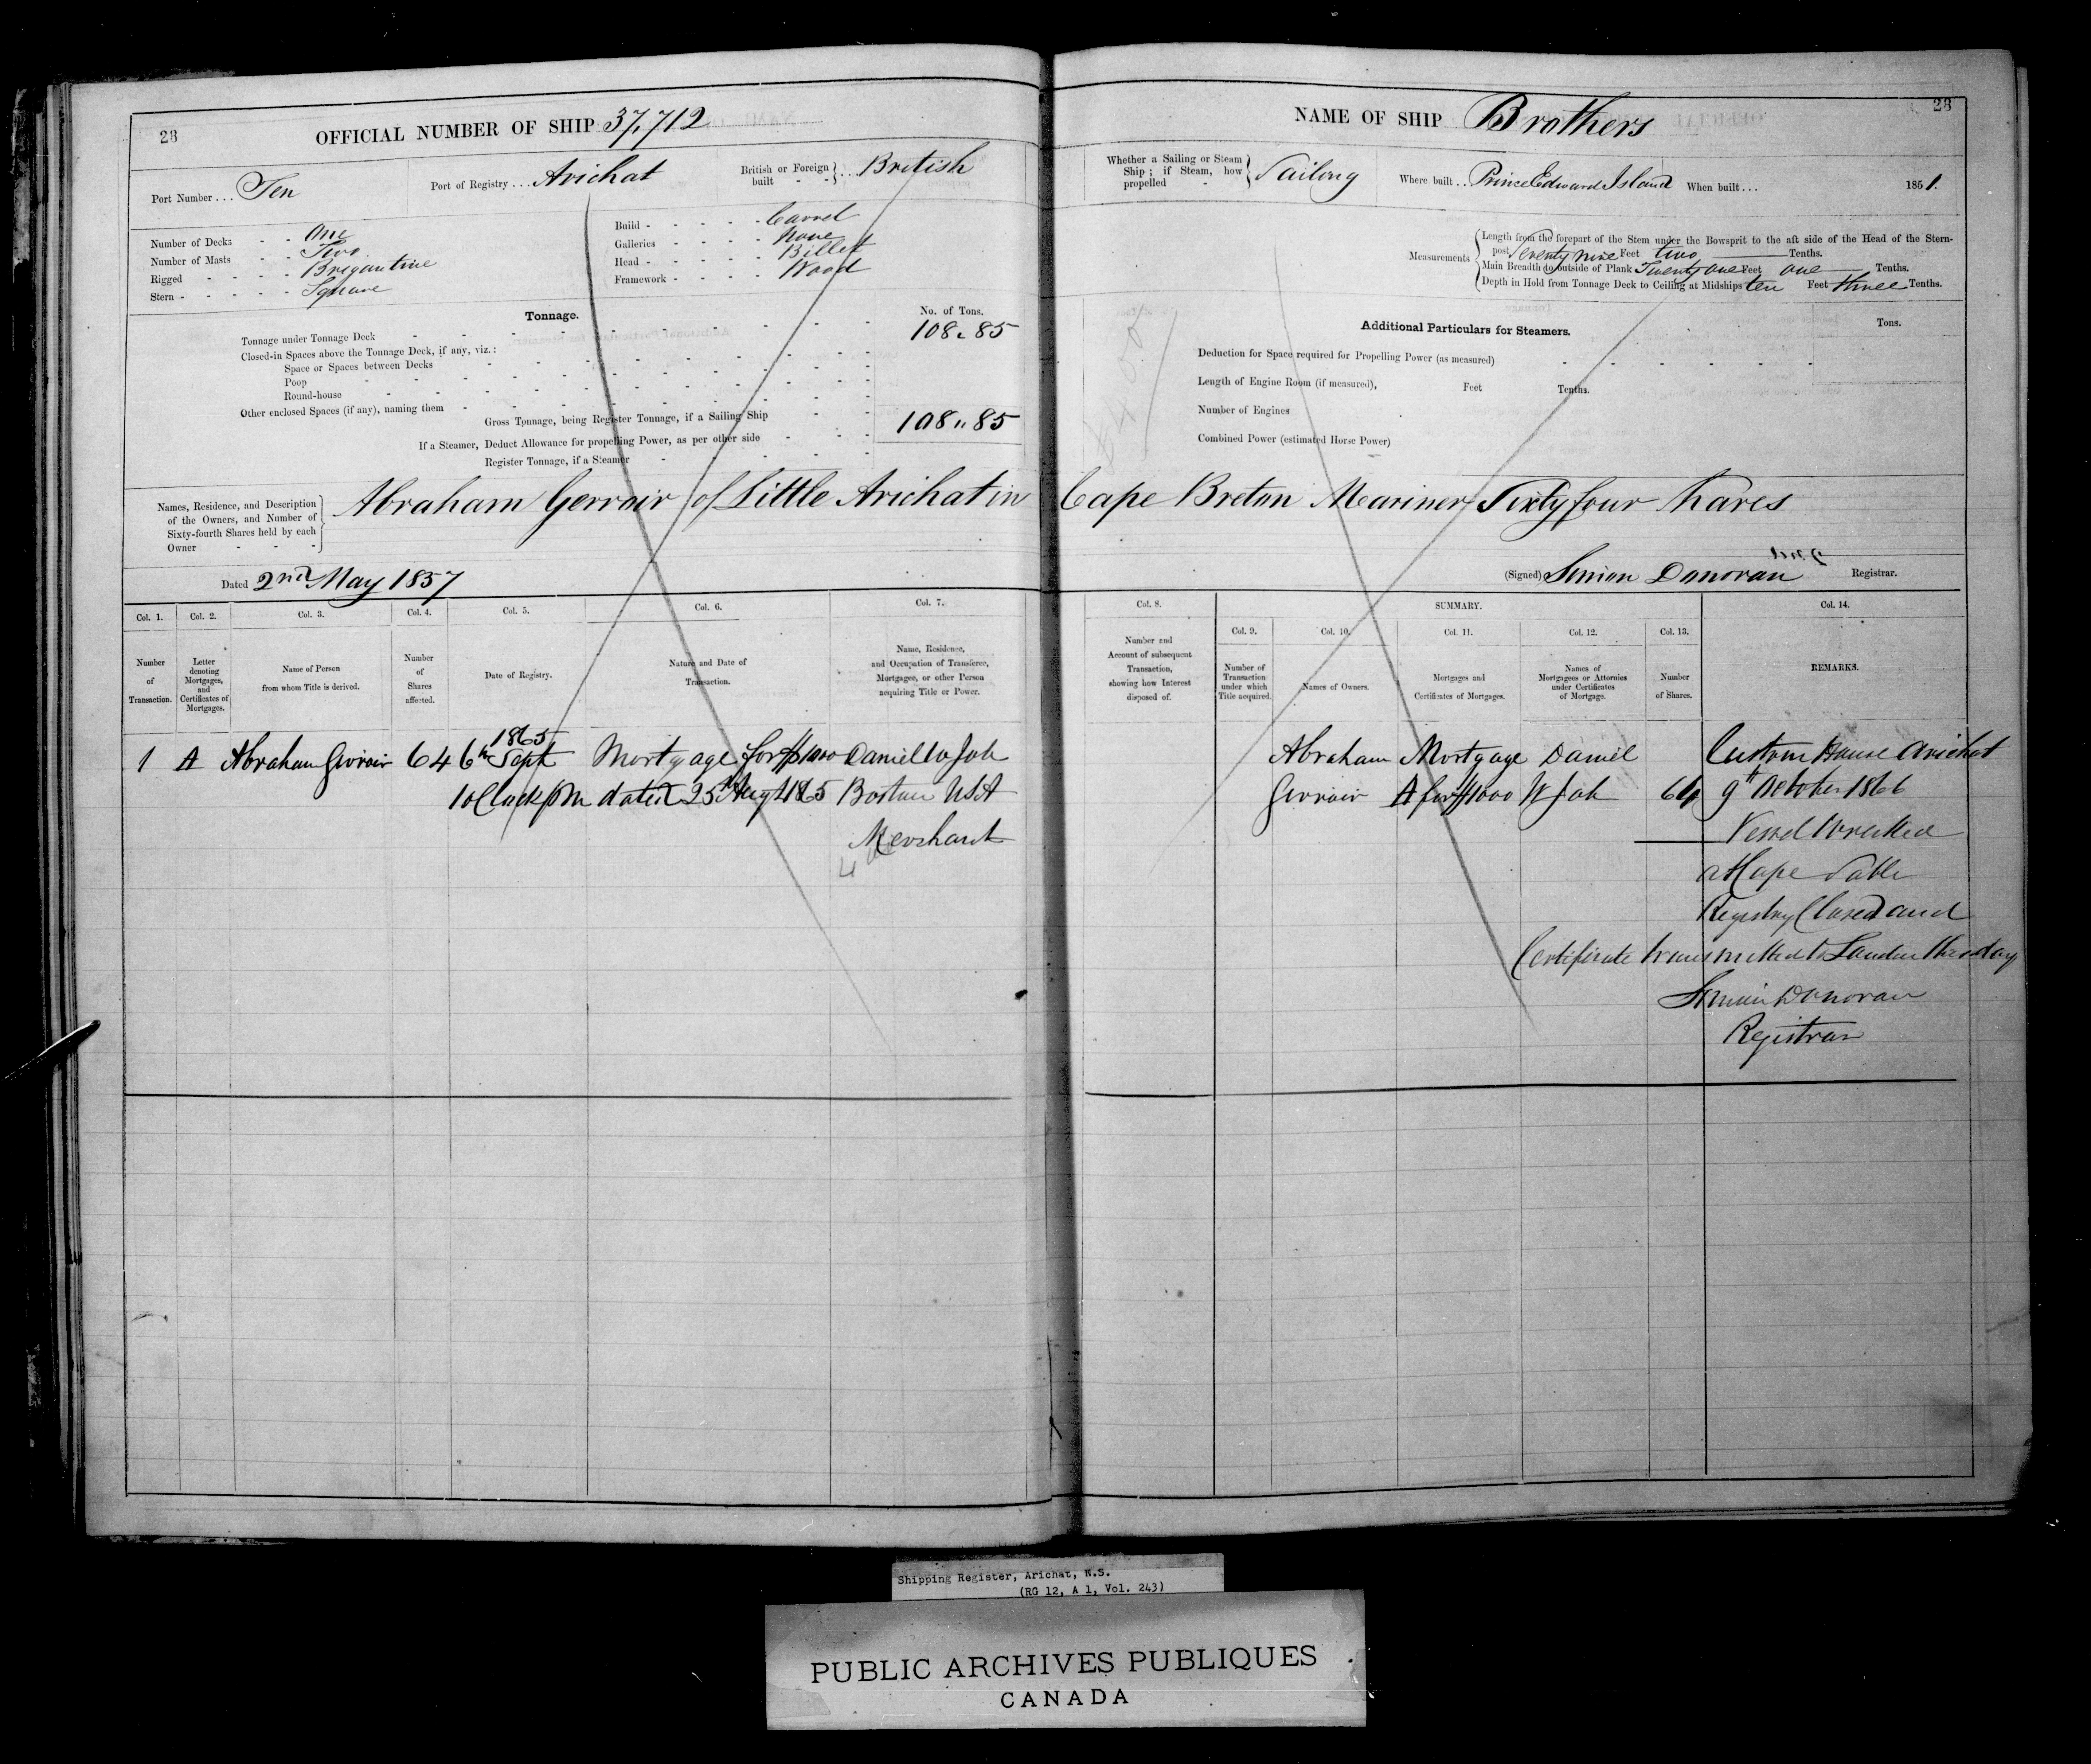 28
OFFICIAL NUMBER OF SHIP 37,712
Port Number . . . Ten
Port of Registry . . . Arichat
British or Foreign built - - } . . . British
Number of Decks - - One
Number of Masts - - Two
Rigged - - - - Brigantine
Stern - - - - - Square
Build - - - - - Carvel
Galleries - - - - - None
Head - - - - - Billet
Framework - - - - Wood
Tonnage.
No. of Tons.
Tonnage under Tonnage Deck 108 " 85
Closed-in Spaces above the Tonnage Deck, if any, viz.:
Space or Spaces between Decks
Poop
Round-house
Other enclosed Spaces (if any), naming them
Gross Tonnage, being Register Tonnage, if a Sailing Ship 108 " 85
If a Steamer, Deduct Allowance for propelling Power, as per other side
Register Tonnage, if a Steamer
28
NAME OF SHIP Brothers
Whether a Sailing or Steam Ship ; if Steam, how propelled - } Sailing
Where built . . Prince Edward Island
When built . . . 1851.
Measurements
Length from the forepart of the Stem under the Bowsprit to the aft side of the Head of the Stern-
post Seventy nine Feet two Tenths.
Main Breadth to outside of Plank Twenty one Feet one Tenths.
Depth in Hold from Tonnage Deck to Ceiling at Midships ten Feet three Tenths.
Additional Particulars for Steamers.
Tons.
Deduction for Space required for Propelling Power (as measured)
Length of Engine Room (if measured), Feet Tenths.
Number of Engines
Combined Power (estimated Horse Power)
Names, Residence, and Description
of the Owners, and Number of
Sixty-fourth Shares held by each
Owner - - -
Abraham Gerroir of Little Arichat in Cape Breton Mariner Sixty four hares
Dated 2nd May 1857
(Signed) Simon Donovan Registrar.
Col. 1.
Number of Transaction.
Col. 2.
Letter denoting Mortgages, and Certificates of Mortgages.
Col. 3.
Name of Person from whom Title is derived.
Col. 4.
Number of Shares affected.
Col. 5.
Date of Registry.
Col. 6.
Nature and Date of Transaction.
Col. 7.
Name, Residence, and Occupation of Transferee, Mortgagee, or other Person acquiring Title or Power.
Col. 8.
Number and Account of subsequent Transaction, showing how Interest disposed of.
SUMMARY.
Col. 9.
Number of Transaction under which Title acquired.
Col. 10.
Names of Owners.
Col. 11.
Mortgages and Certificates of Mortgages.
Col. 12.
Names of Mortgagees or Attornies under Certificates of Mortgage.
Col. 13.
Number of Shares.
Col. 14.
REMARKS.
1865
1 A Abraham Girroir 64 6th Sept Mortgage for $1000 Daniel W Job
1 oClock PM dated 25th Augt 1865 Boston USA
Merchant
Abraham Mortgage Daniel
Girroir A for $1000 W Job 64
Custom House Arichat
9th October 1866
Vessel Wrecked
at Cape Sable
Registry Closed and
Certificate transmitted to London this day
Simon Donovan
Registrar
Shipping Register, Arichat, N.S.
(RG 12, A 1, Vol. 243)
PUBLIC ARCHIVES PUBLIQUES
CANADA